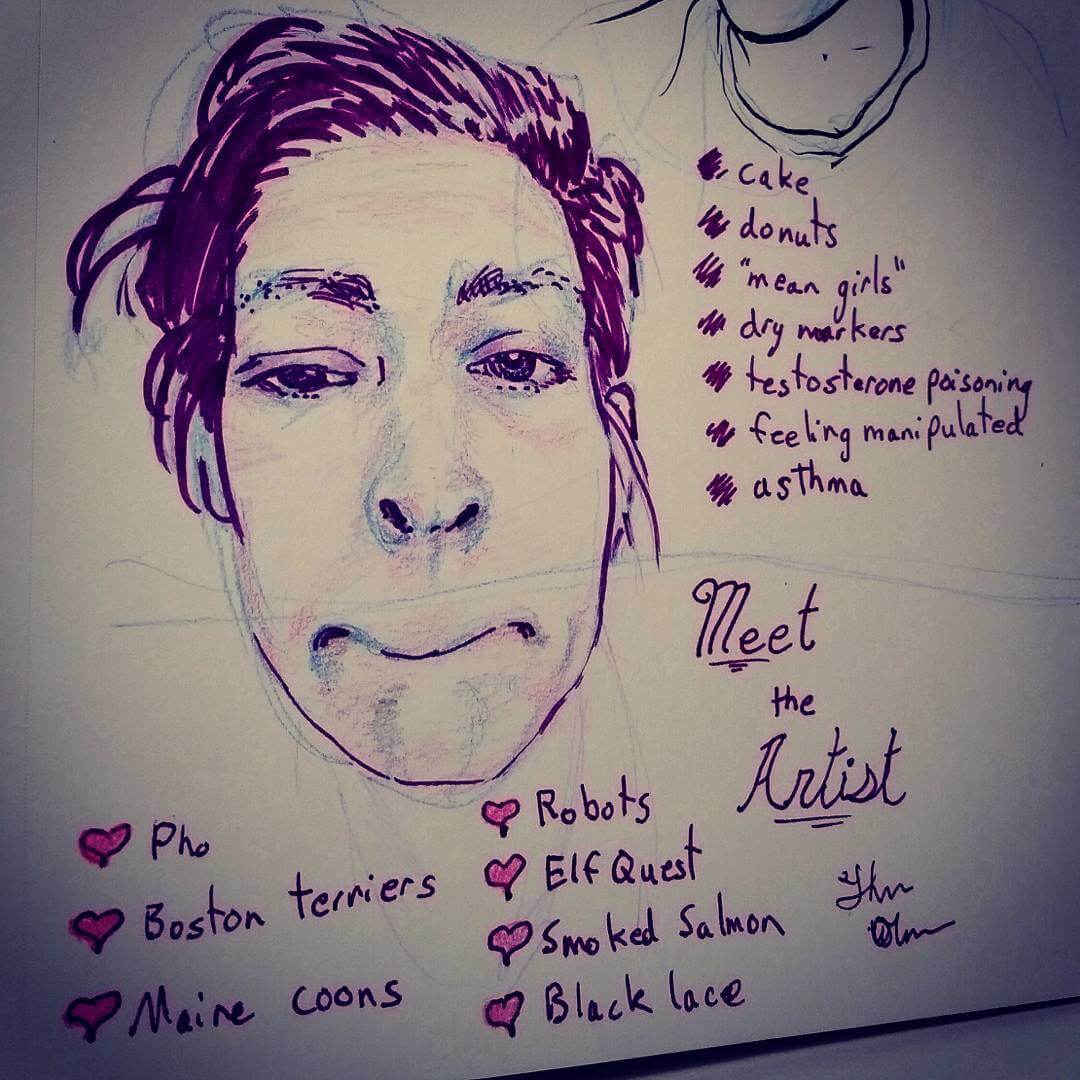 cake
donuts
"mean girls"
dry markers
testosterone poisoning
feeling manipulated
asthma
Meet
the
Artist
Pho
Boston terriers
Maine coons
Robots
Elf Quest
Smoked Salmon
Black lace